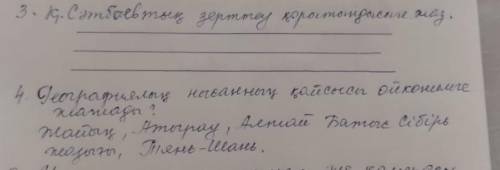 3. Қ. Сәтбаевтың зерттеу қорытындысын жаз.
4. Географиялық нысанның қайсысы ойконимге
жатады?
Жайық, Атырау, Алтай Батыс Сібірь
жазығы, Тянь-Шань.